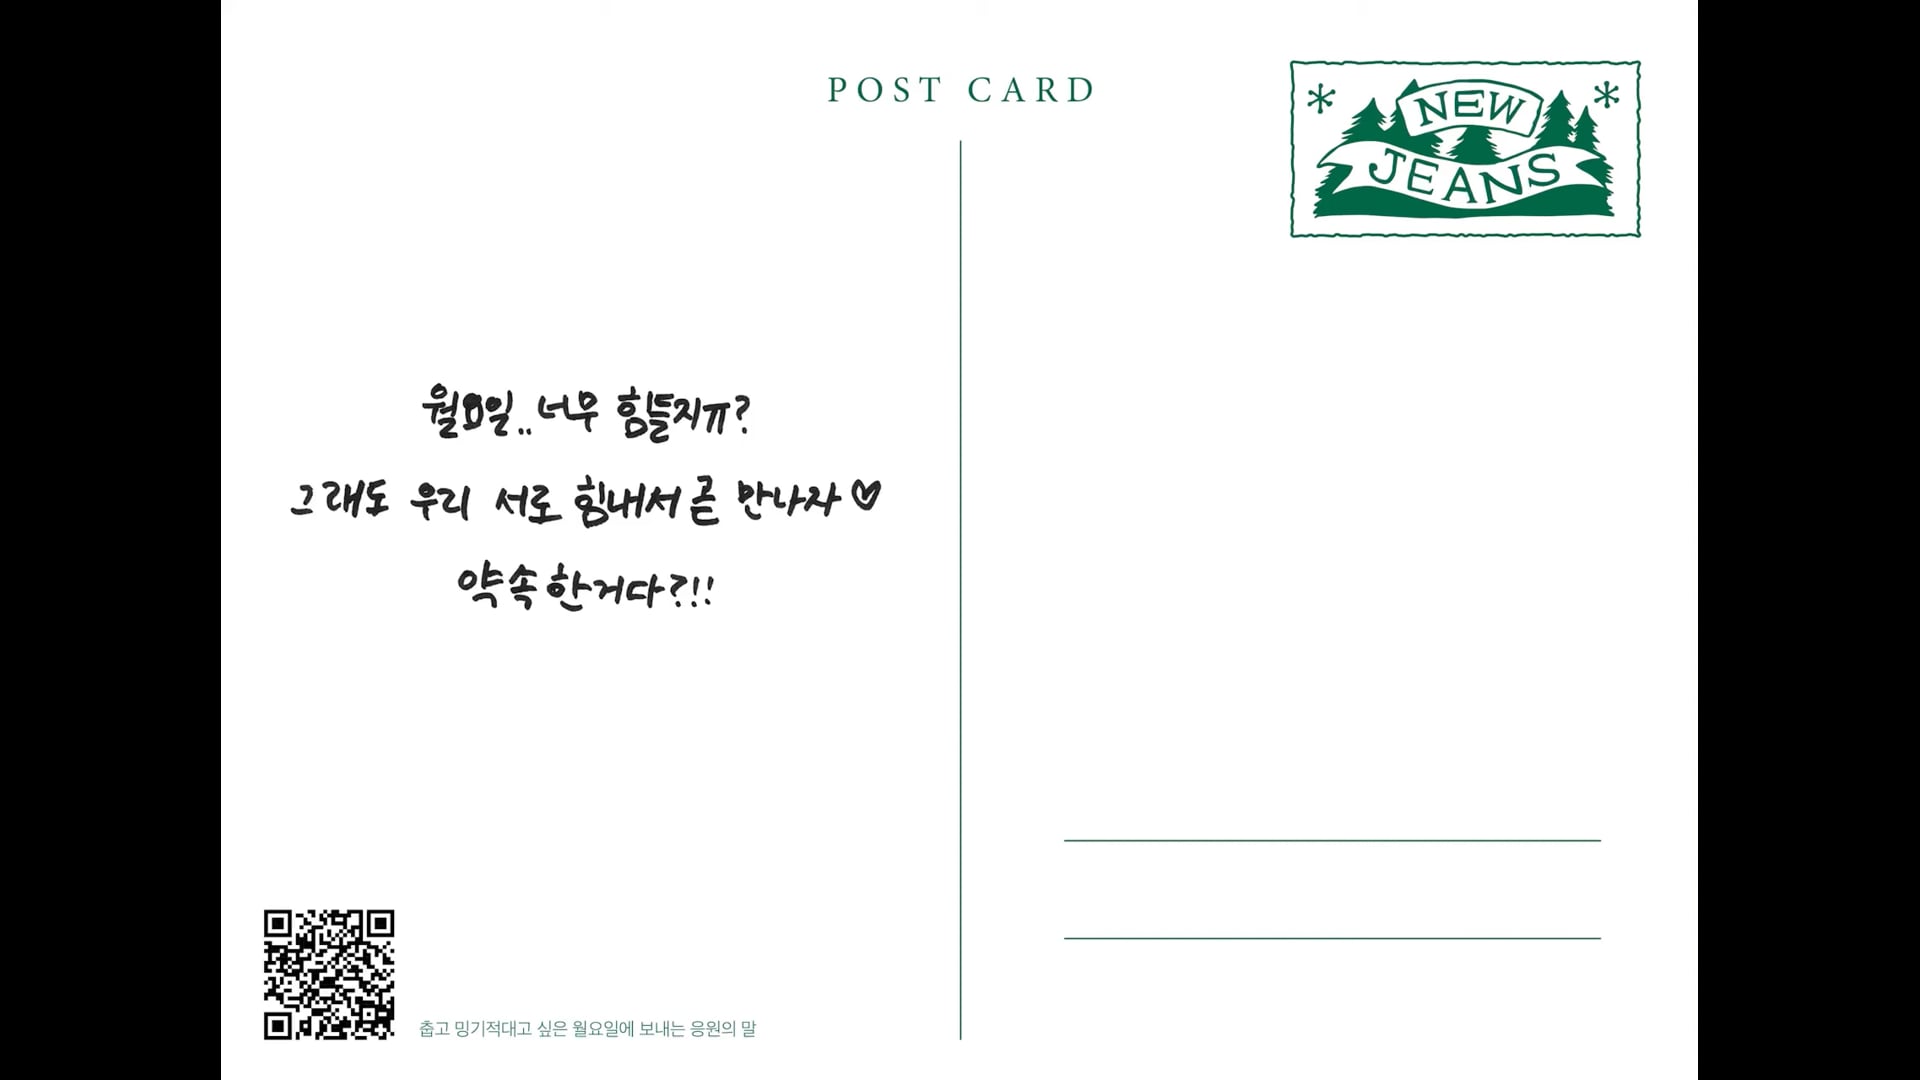 POST CARD
NEW
JEANS
월요일.. 너무 힘들지ㅠ?
그래도 우리 서로 힘내서 곧 만나자♡
약속한거다?!!
춥고 밍기적대고 싶은 월요일에 보내는 응원의 말